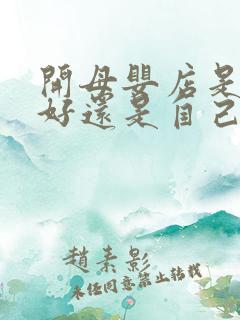 開母嬰店是
好還是自己
趙素影
未任同意禁止转载